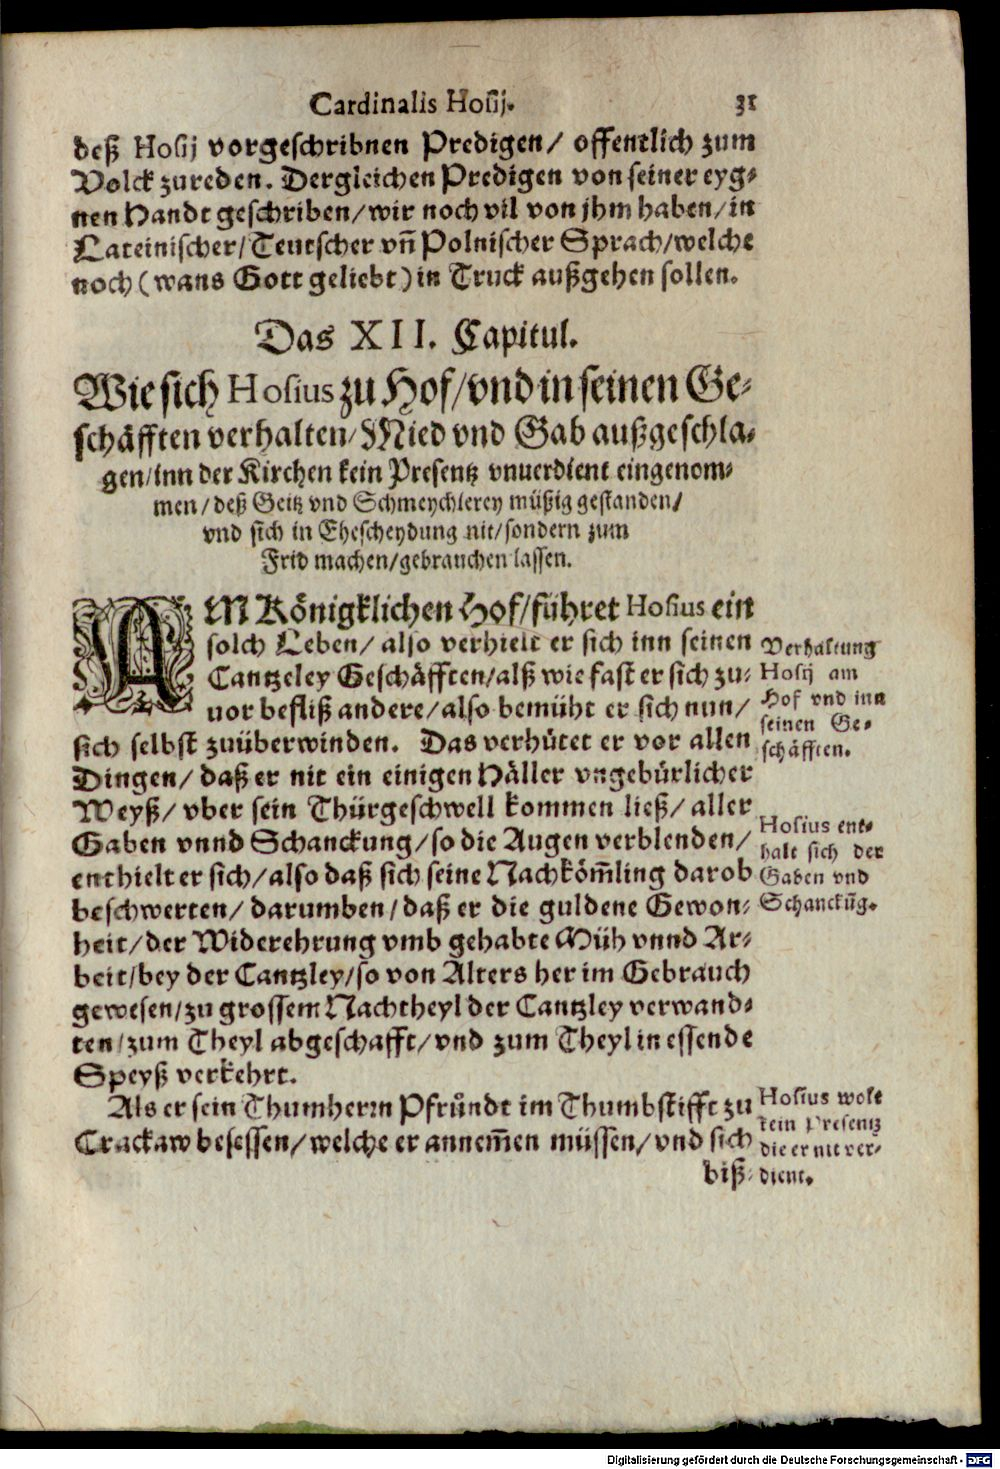 Cardinalis Hosij. 31
deß Hosij vorgeschribnen Predigen/ offentlich zum
Volck zureden. Dergleichen Predigen von seiner eyg-
nen Handt geschriben/wir noch vil von jhm haben/in
Lateinischer/Teutscher vñ Polnischer Sprach/welche
noch (wans Gott geliebt) in Truck außgehen sollen.
Das XII. Capitul.
Wie sich Hosius zu Hof/vnd in seinen Ge-
schäfften verhalten/Mied vnd Gab außgeschla-
gen/inn der Kirchen kein Presentz vnuerdient eingenom-
men/deß Geitz vnd Schmeychlerey müßig gestanden/
vnd sich in Ehescheydung nit/sondern zum
Frid machen/gebrauchen lassen.
AM Königklichen Hof/führet Hosius ein
solch Leben/ also verhielt er sich inn seinen
Cantzeley Geschäfften/alß wie fast er sich zu-
uor befliß andere/also bemüht er sich nun/
sich selbst zuüberwinden. Das verhütet er vor allen
Dingen/ daß er nit ein einigen Häller vngebürlicher
Weyß/ vber sein Thürgeschwell kommen ließ/ aller
Gaben vnnd Schanckung/so die Augen verblenden/
enthielt er sich/also daß sich seine Nachkömling darob
beschwerten/ darumben/daß er die guldene Gewon-
heit/der Widerehrung vmb gehabte Müh vnnd Ar-
beit/bey der Cantzley/so von Alters her im Gebrauch
gewesen/zu grossem Nachtheyl der Cantzley verwand-
ten/zum Theyl abgeschafft/vnd zum Theyl in essende
Speyß verkehrt.
Als er sein Thumherrn Pfründt im Thumbstifft zu
Crackaw besessen/welche er annem̃en müssen/vnd sich
biß-
Verhaltung
Hosij am
Hof vnd inn
seinen Ge-
schäfften.
Hosius ent-
halt sich der
Gaben vnd
Schanckũg.
Hosius wolt
kein Presentz
die er nit ver-
dient.
Digitalisierung gefördert durch die Deutsche Forschungsgemeinschaft - DFG